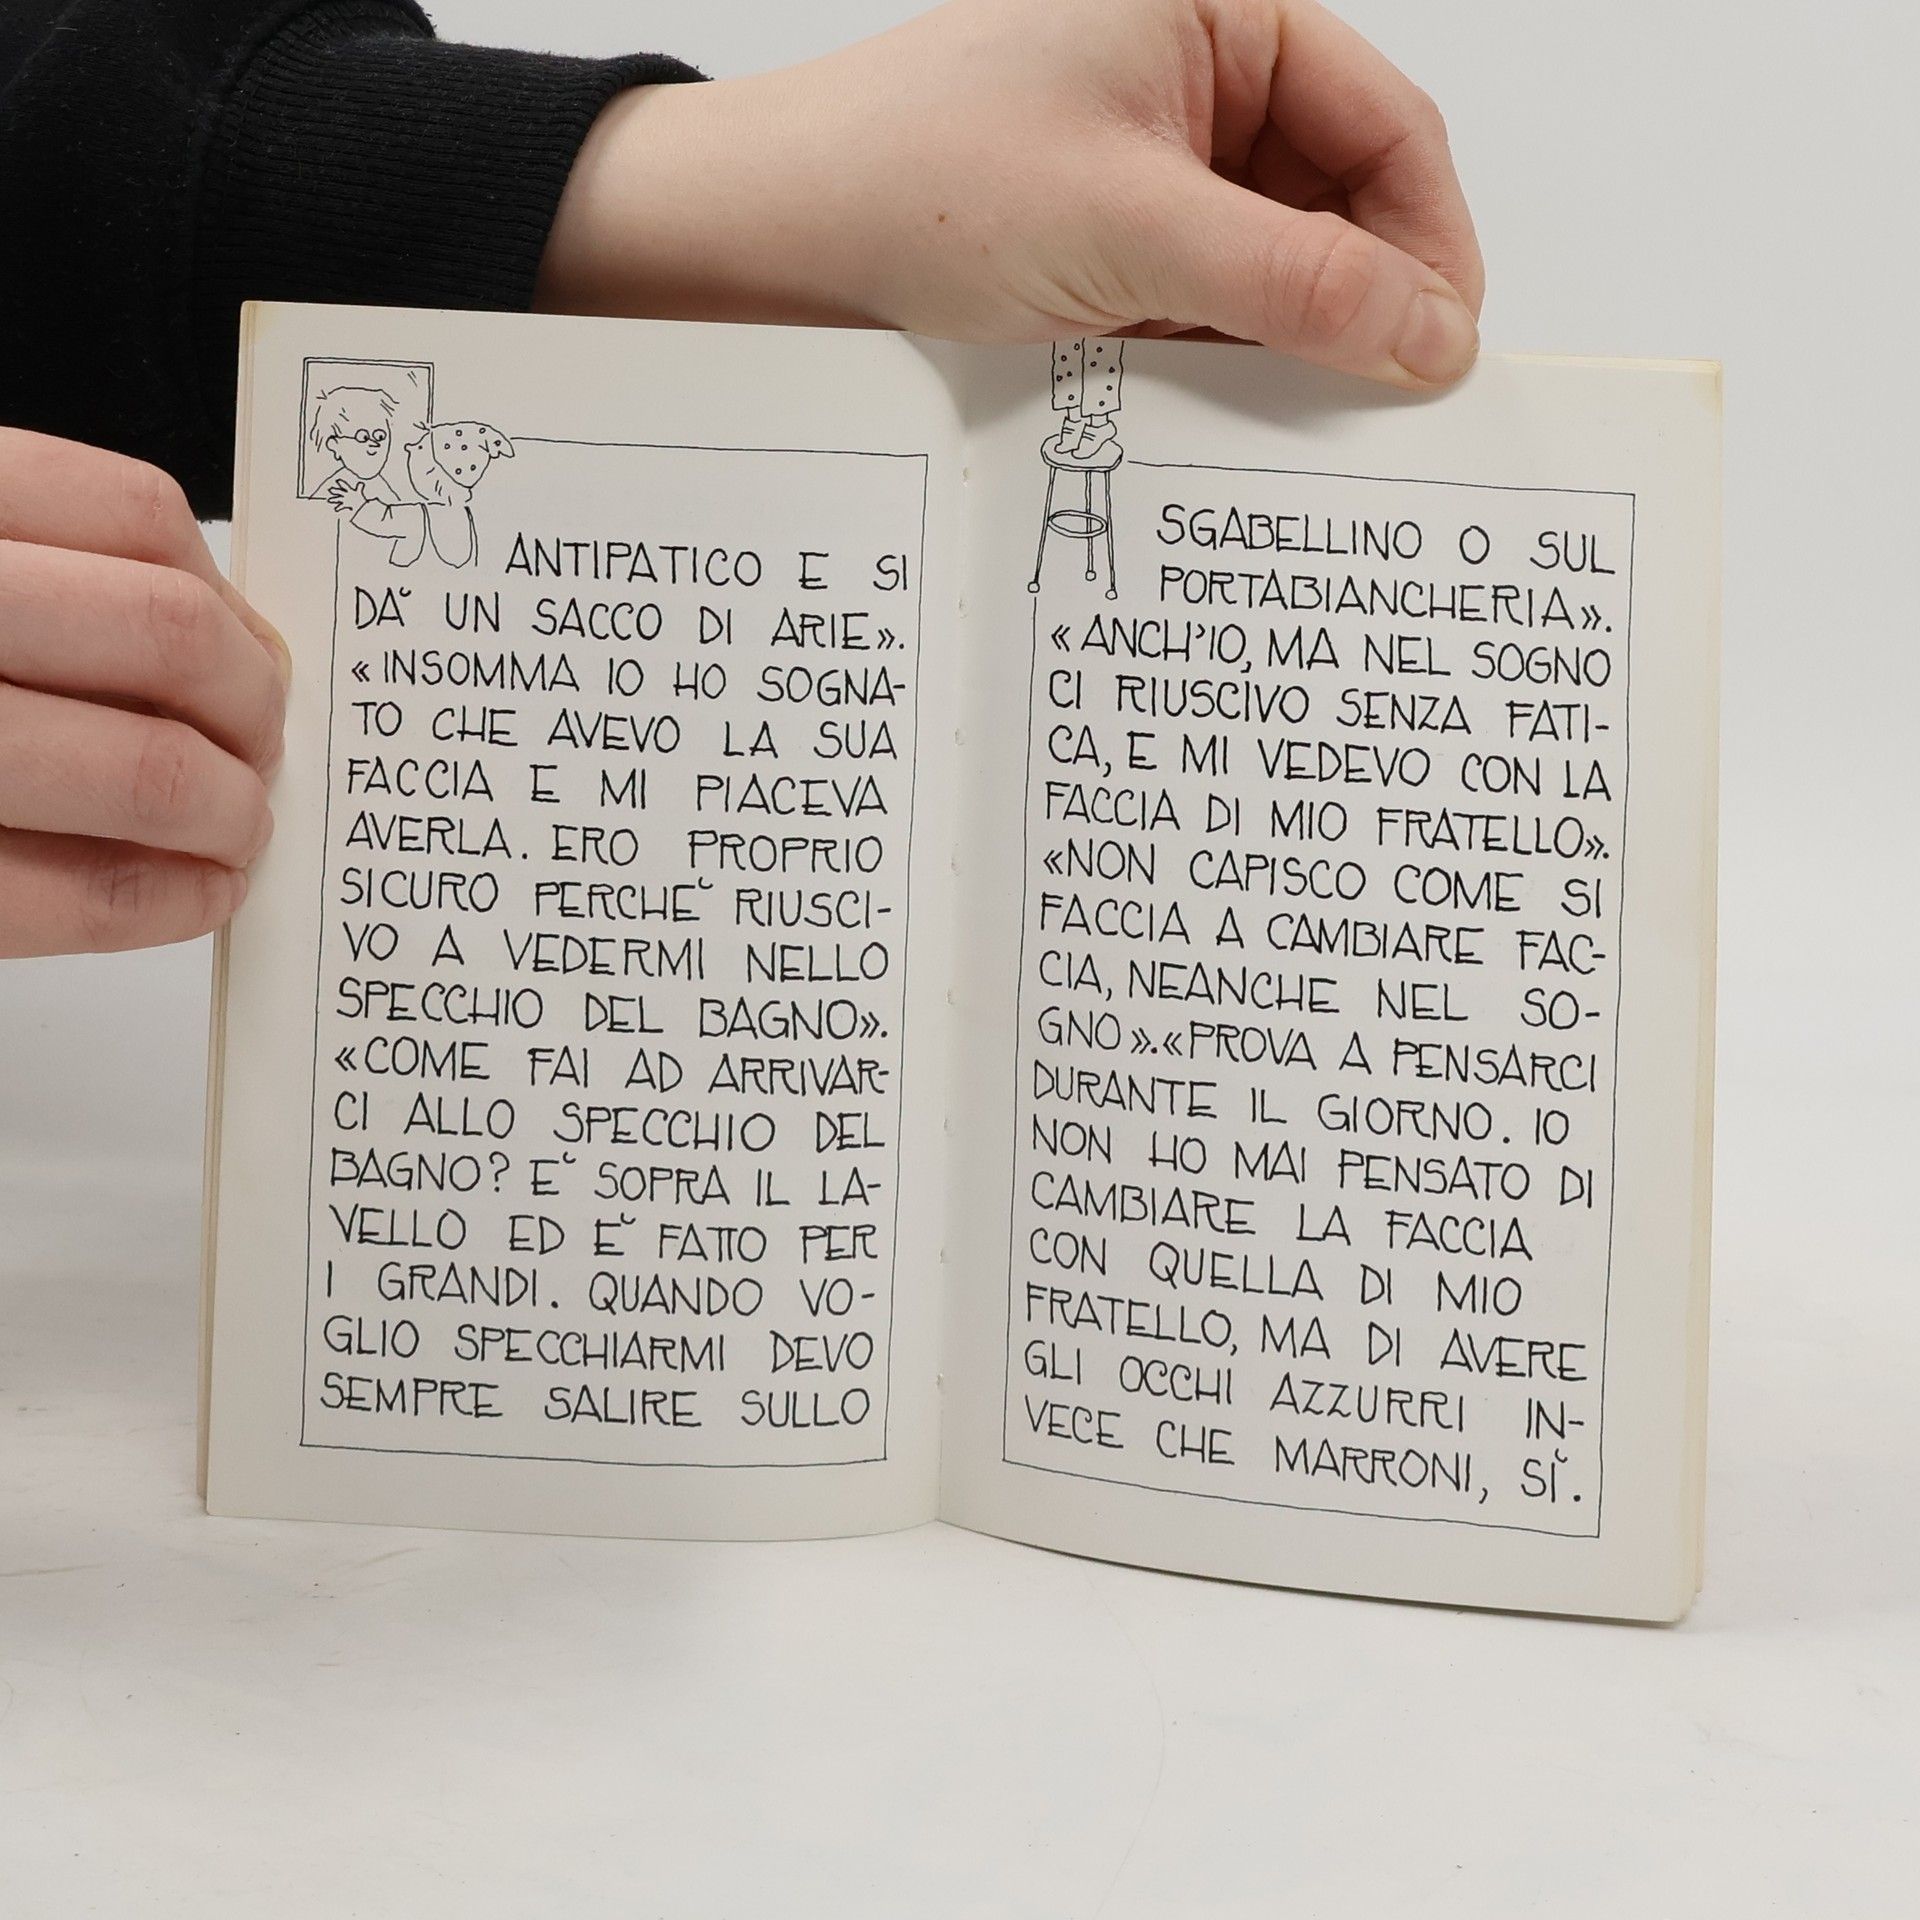 ANTIPATICO E SI
DĂ UN SACCO DI ARIE».
«INSOMMA IO HO SOGNA-
TO CHE AVEVO LA SUA
FACCIA E MI PIACEVA
AVERLA. ERO PROPRIO
SICURO PERCHĔ RIUSCI-
VO A VEDERMI NELLO
SPECCHIO DEL BAGNO».
«COME FAI AD ARRIVAR-
CI ALLO SPECCHIO DEL
BAGNO? Ĕ SOPRA IL LA-
VELLO ED Ĕ FATTO PER
I GRANDI. QUANDO VO-
GLIO SPECCHIARMI DEVO
SEMPRE SALIRE SULLO
SGABELLINO O SUL
PORTABIANCHERIA».
«ANCH'IO, MA NEL SOGNO
CI RIUSCIVO SENZA FATI-
CA, E MI VEDEVO CON LA
FACCIA DI MIO FRATELLO».
«NON CAPISCO COME SI
FACCIA A CAMBIARE FAC-
CIA, NEANCHE NEL SO-
GNO».«PROVA A PENSARCI
DURANTE IL GIORNO. IO
NON HO MAI PENSATO DI
CAMBIARE LA FACCIA
CON QUELLA DI MIO
FRATELLO, MA DI AVERE
GLI OCCHI AZZURRI IN-
VECE CHE MARRONI, SĬ.